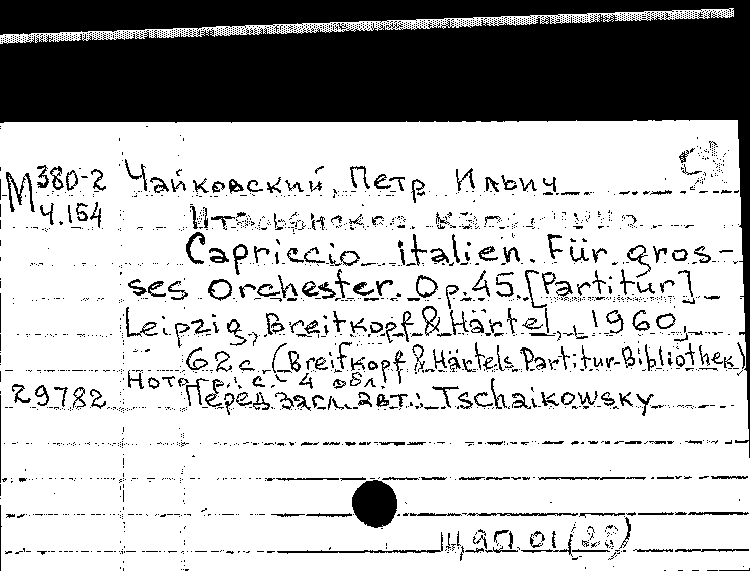 М 380-2 Чайковский, Петр Ильич
ч.154 Итальянское каприччио
Capriccio italien. Für gros-
ses Orchester. Op.45. [Partitur]
Leipzig, Breitkopf & Härtel, [1960]
62 с. (Breitkopf & Härtels Partitur-Bibliothek)
Нотогр.: с. 4 обл.
29782 Перед загл. авт.: Tschaikowsky
(28)